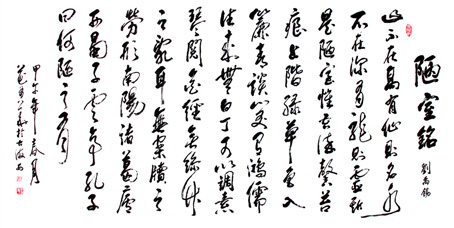 陋室銘
劉禹錫
山不在高有仙則名水
不在深有龍則靈斯
是陋室惟吾德馨苔
痕上階綠草色入
簾青談笑有鴻儒
往來無白丁可以調素
琴閱金經無絲竹
之亂耳無案牘之
勞形南陽諸葛廬
西蜀子雲亭孔子
曰何陋之有
甲午年春月